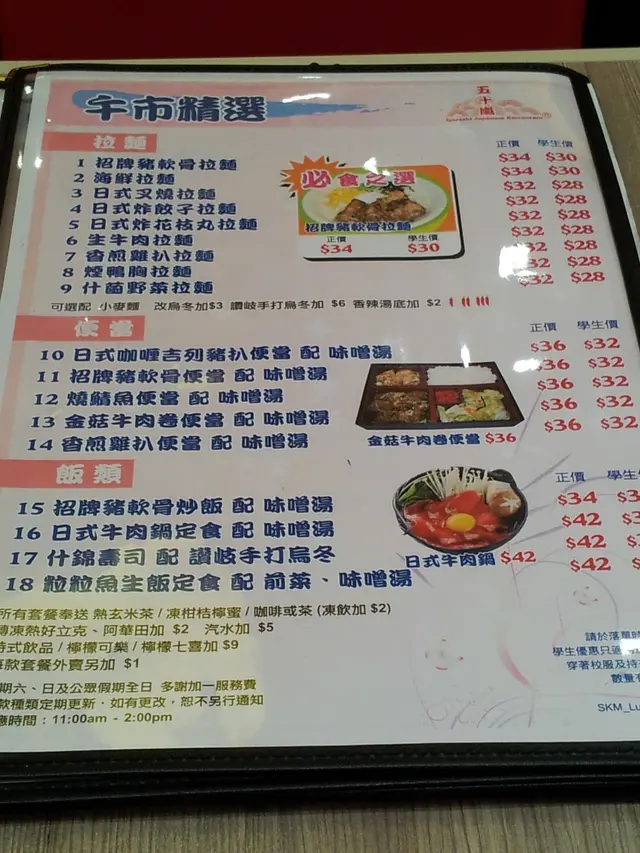 午市精選
五十嵐
拉麵
正價 學生價
1 招牌豬軟骨拉麵 $34 $30
2 海鮮拉麵 $34 $30
3 日式叉燒拉麵 $32 $28
4 日式炸餃子拉麵 $32 $28
5 日式炸花枝丸拉麵 $32 $28
6 生牛肉拉麵 $32 $28
7 香煎雞扒拉麵 $32 $28
8 煙鴨胸拉麵 $32 $28
9 什菌野菜拉麵 $32 $28
必食之選
招牌豬軟骨拉麵
正價 學生價
$34 $30
可選配 小麥麵 改烏冬加$3 讚岐手打烏冬加 $6 香辣湯底加 $2
便當
正價 學生價
10 日式咖喱吉列豬扒便當 配 味噌湯 $36 $32
11 招牌豬軟骨便當 配 味噌湯 $36 $32
12 燒鯖魚便當 配 味噌湯 $36 $32
13 金菇牛肉卷便當 配 味噌湯 $36 $32
14 香煎雞扒便當 配 味噌湯 $36 $32
金菇牛肉卷便當 $36
飯類
正價 學生
15 招牌豬軟骨炒飯 配 味噌湯 $34
16 日式牛肉鍋定食 配 味噌湯 $42
17 什錦壽司 配 讚岐手打烏冬 $42
18 粒粒魚生飯定食 配 前菜、味噌湯 $42
日式牛肉鍋 $42
所有套餐奉送 熱玄米茶 / 凍柑桔檸蜜 / 咖啡或茶 (凍飲加 $2)
凍熱好立克、阿華田加 $2 汽水加 $5
特式飲品 / 檸檬可樂 / 檸檬七喜加 $9
款套餐外賣另加 $1
期六、日及公眾假期全日 多謝加一服務費
款種類定期更新，如有更改，恕不另行通知
應時間：11:00am - 2:00pm
請於落單時
學生優惠只適
穿著校服及持
數量有
SKM_Lu